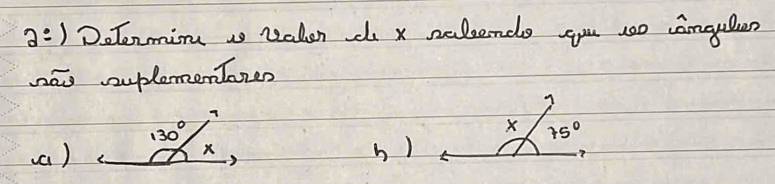 2º) Determine o valor de x sabendo que os ângulos
são suplementares
a) 130° x b) x 75°